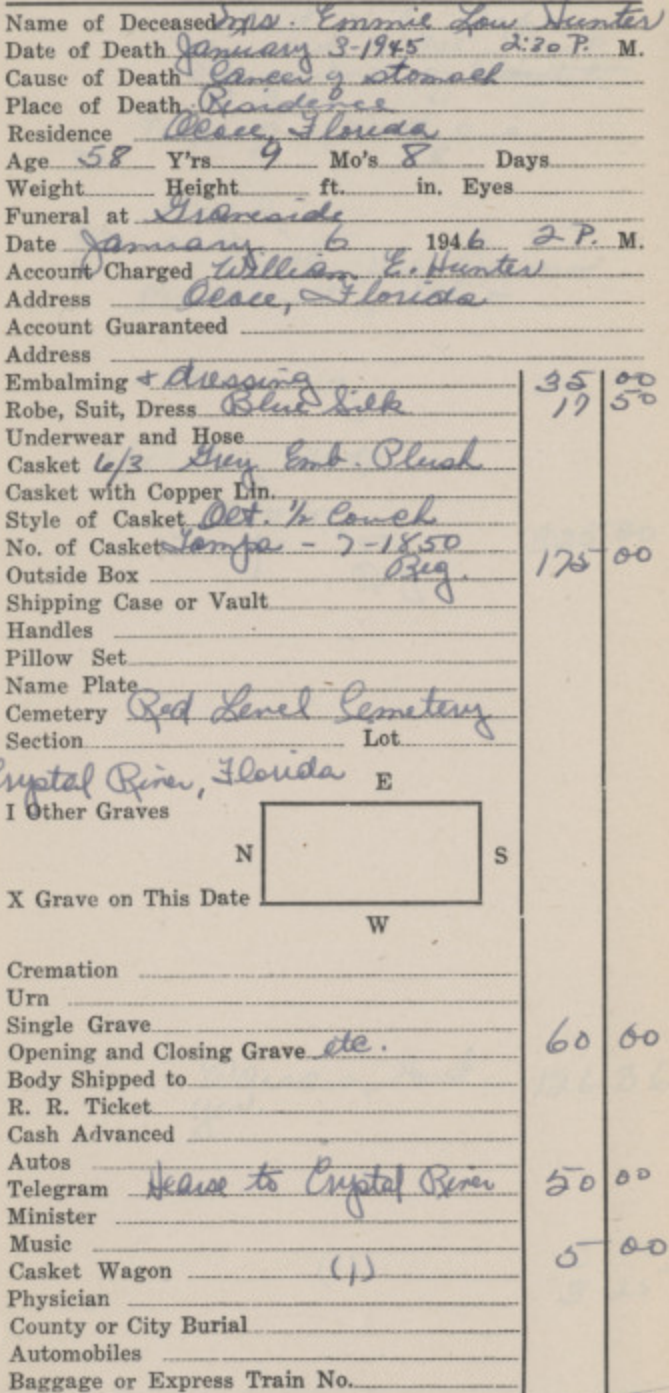 Name of Deceased Mrs. Emmie Lou Hunter
Date of Death January 3-1945 2:30 P. M.
Cause of Death Cancer of stomach
Place of Death Residence
Residence Ocoee, Florida
Age 58 Y'rs 9 Mo's 8 Days
Weight Height ft. in. Eyes
Funeral at Graveside
Date January 6 1946 2 P. M.
Account Charged William E. Hunter
Address Ocoee, Florida
Account Guaranteed
Address
Embalming + dressing 35 00
Robe, Suit, Dress Blue Silk 17 50
Underwear and Hose
Casket 6/3 Grey Emb. Plush
Casket with Copper Lin.
Style of Casket Oct. 1/2 Couch
No. of Casket Tampa - 7-1850
Outside Box Reg. 175 00
Shipping Case or Vault
Handles
Pillow Set
Name Plate
Cemetery Red Level Cemetery
Section Lot
Crystal River, Florida
E
I Other Graves
N S
X Grave on This Date
W
Cremation
Urn
Single Grave
Opening and Closing Grave etc. 60 00
Body Shipped to
R. R. Ticket
Cash Advanced
Autos
Telegram Hearse to Crystal River 50 00
Minister
Music
Casket Wagon (1) 5 00
Physician
County or City Burial
Automobiles
Baggage or Express Train No.